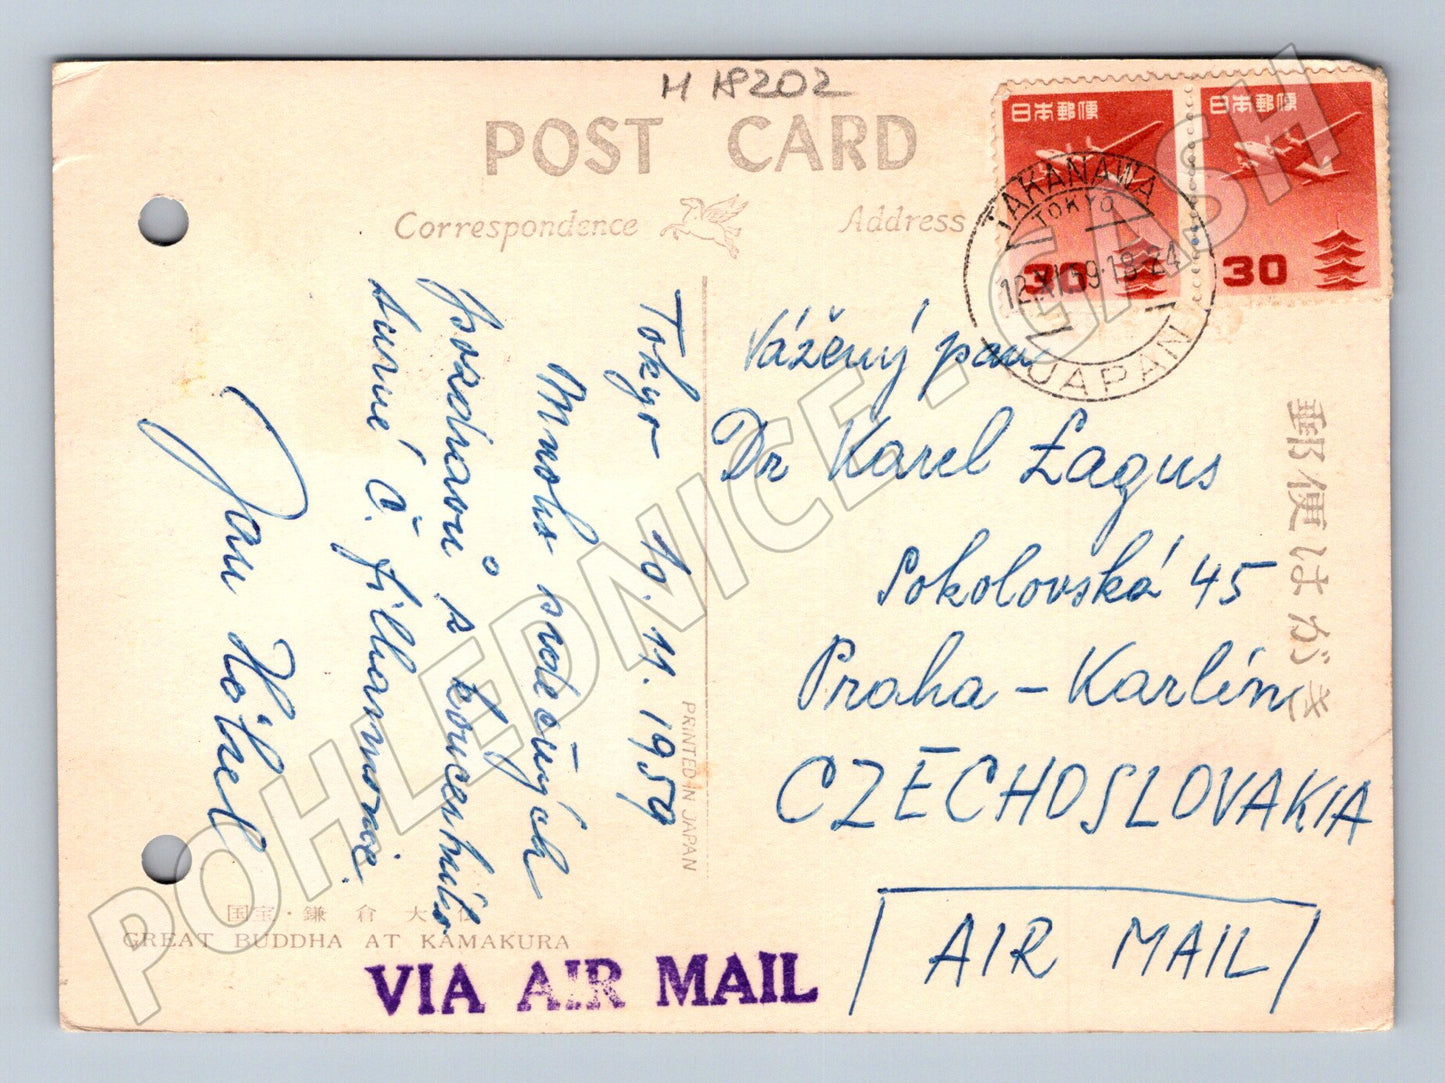 H 18202
POST CARD
Correspondence
Address
日本郵便
30
日本郵便
30
TAKANAWA
TOKYO
12.XI.59.18-24
JAPAN
Tokyo 10.11.1959
Mnoho srdečných
pozdravů s koncertního
turné Č. filharmonie
Jan
Vážený pan
Dr Karel Łagus
Sokolovská 45
Praha - Karlín
CZECHOSLOVAKIA
AIR MAIL
郵便はがき
PRINTED IN JAPAN
国宝・鎌倉大仏
GREAT BUDDHA AT KAMAKURA
VIA AIR MAIL
POHLEDNICE - GASH